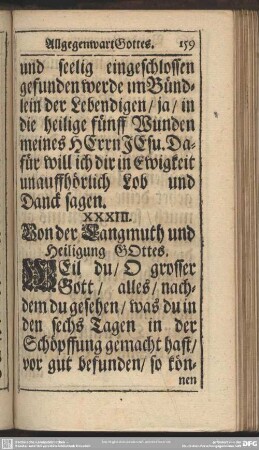 Allgegenwart Gottes. 159
und seelig eingeschlossen
gefunden werde im Bünd-
lein der Lebendigen/ ja/ in
die heilige fünff Wunden
meines HErrn JEsu. Da-
für will ich dir in Ewigkeit
unauffhörlich Lob und
Danck sagen.
XXXIII.
Von der Langmuth und
Heiligung GOttes.
WEil du/ O grosser
Gott/ alles/ nach-
dem du gesehen/ was du in
den sechs Tagen in der
Schöpffung gemacht hast/
vor gut befunden/ so kön-
nen